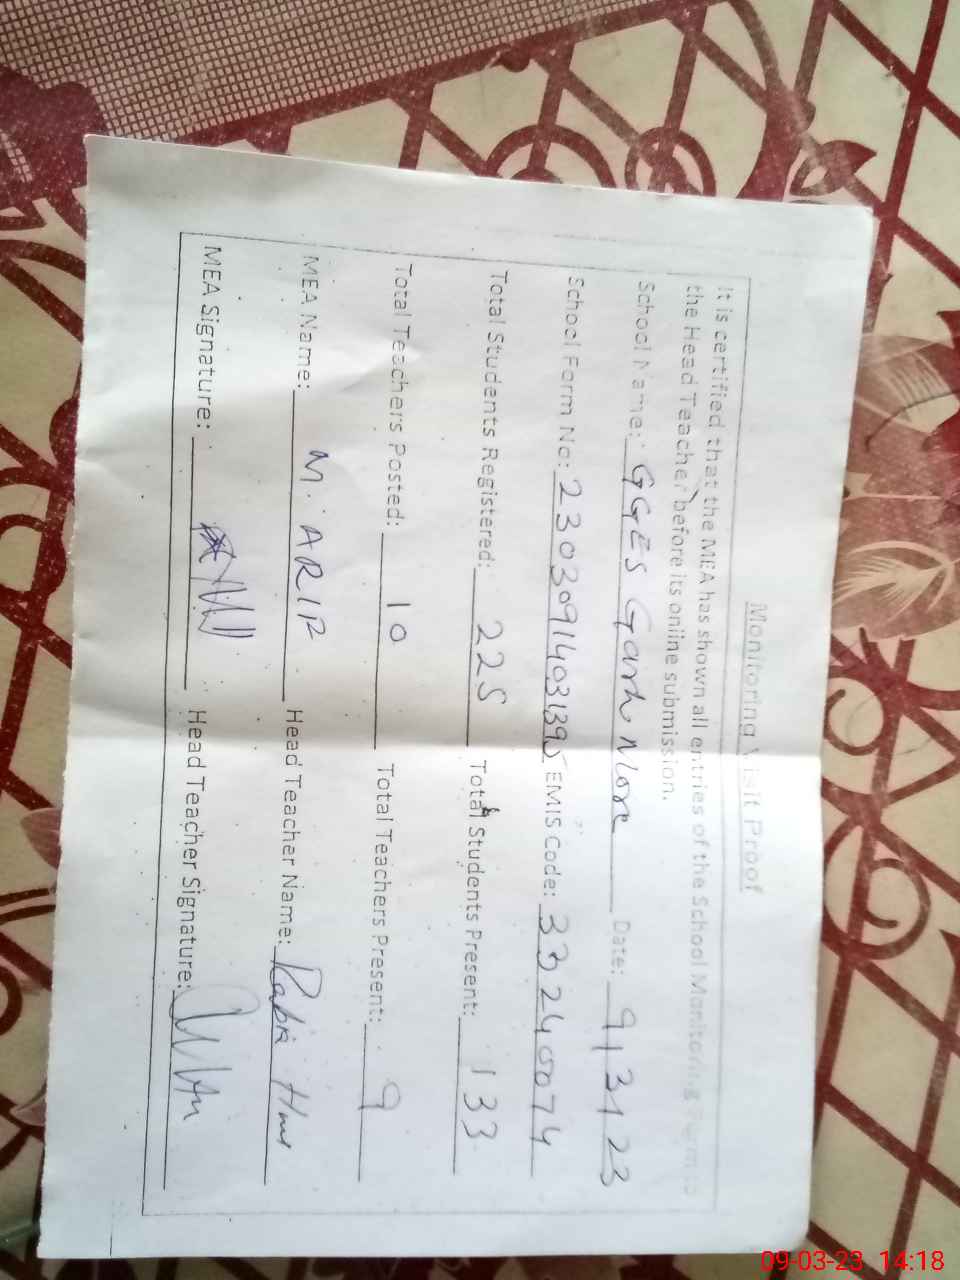 Monitoring Visit Proof
It is certified that the MEA has shown all entries of the School Monitoring Form to
the Head Teacher before its online submission.
School Name: GGES Garh More Date: 9/3/23
School Form No: 23030914031395 EMIS Code: 33240074
Total Students Registered: 225 Total Students Present: 133
Total Teachers Posted: 10 Total Teachers Present: 9
MEA Name: M. ARIF Head Teacher Name: Rabia
MEA Signature: Head Teacher Signature:
09-03-23 14:18